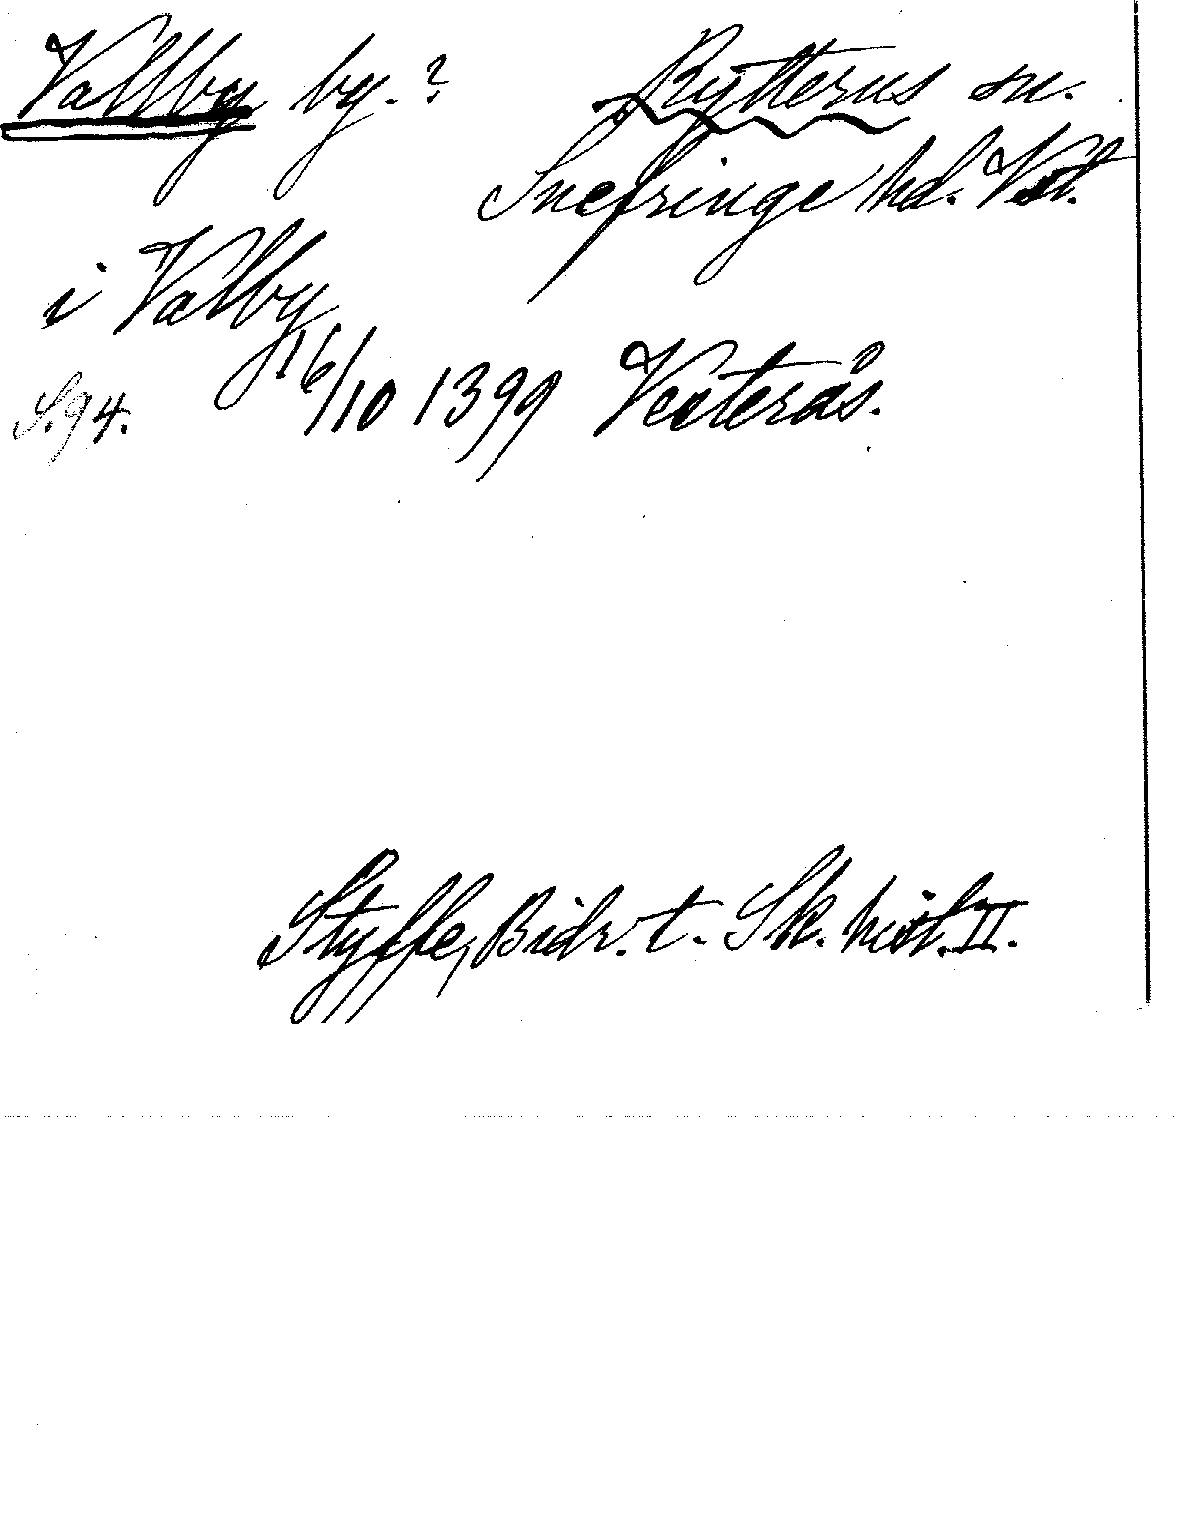 Vallby by.? Rytterns sn.
Snefringe hd. Vstl.
i Valby
16/10 1399 Vesterås.
S. 94.
Styffe, Bidr. t. Sk. hist. II.